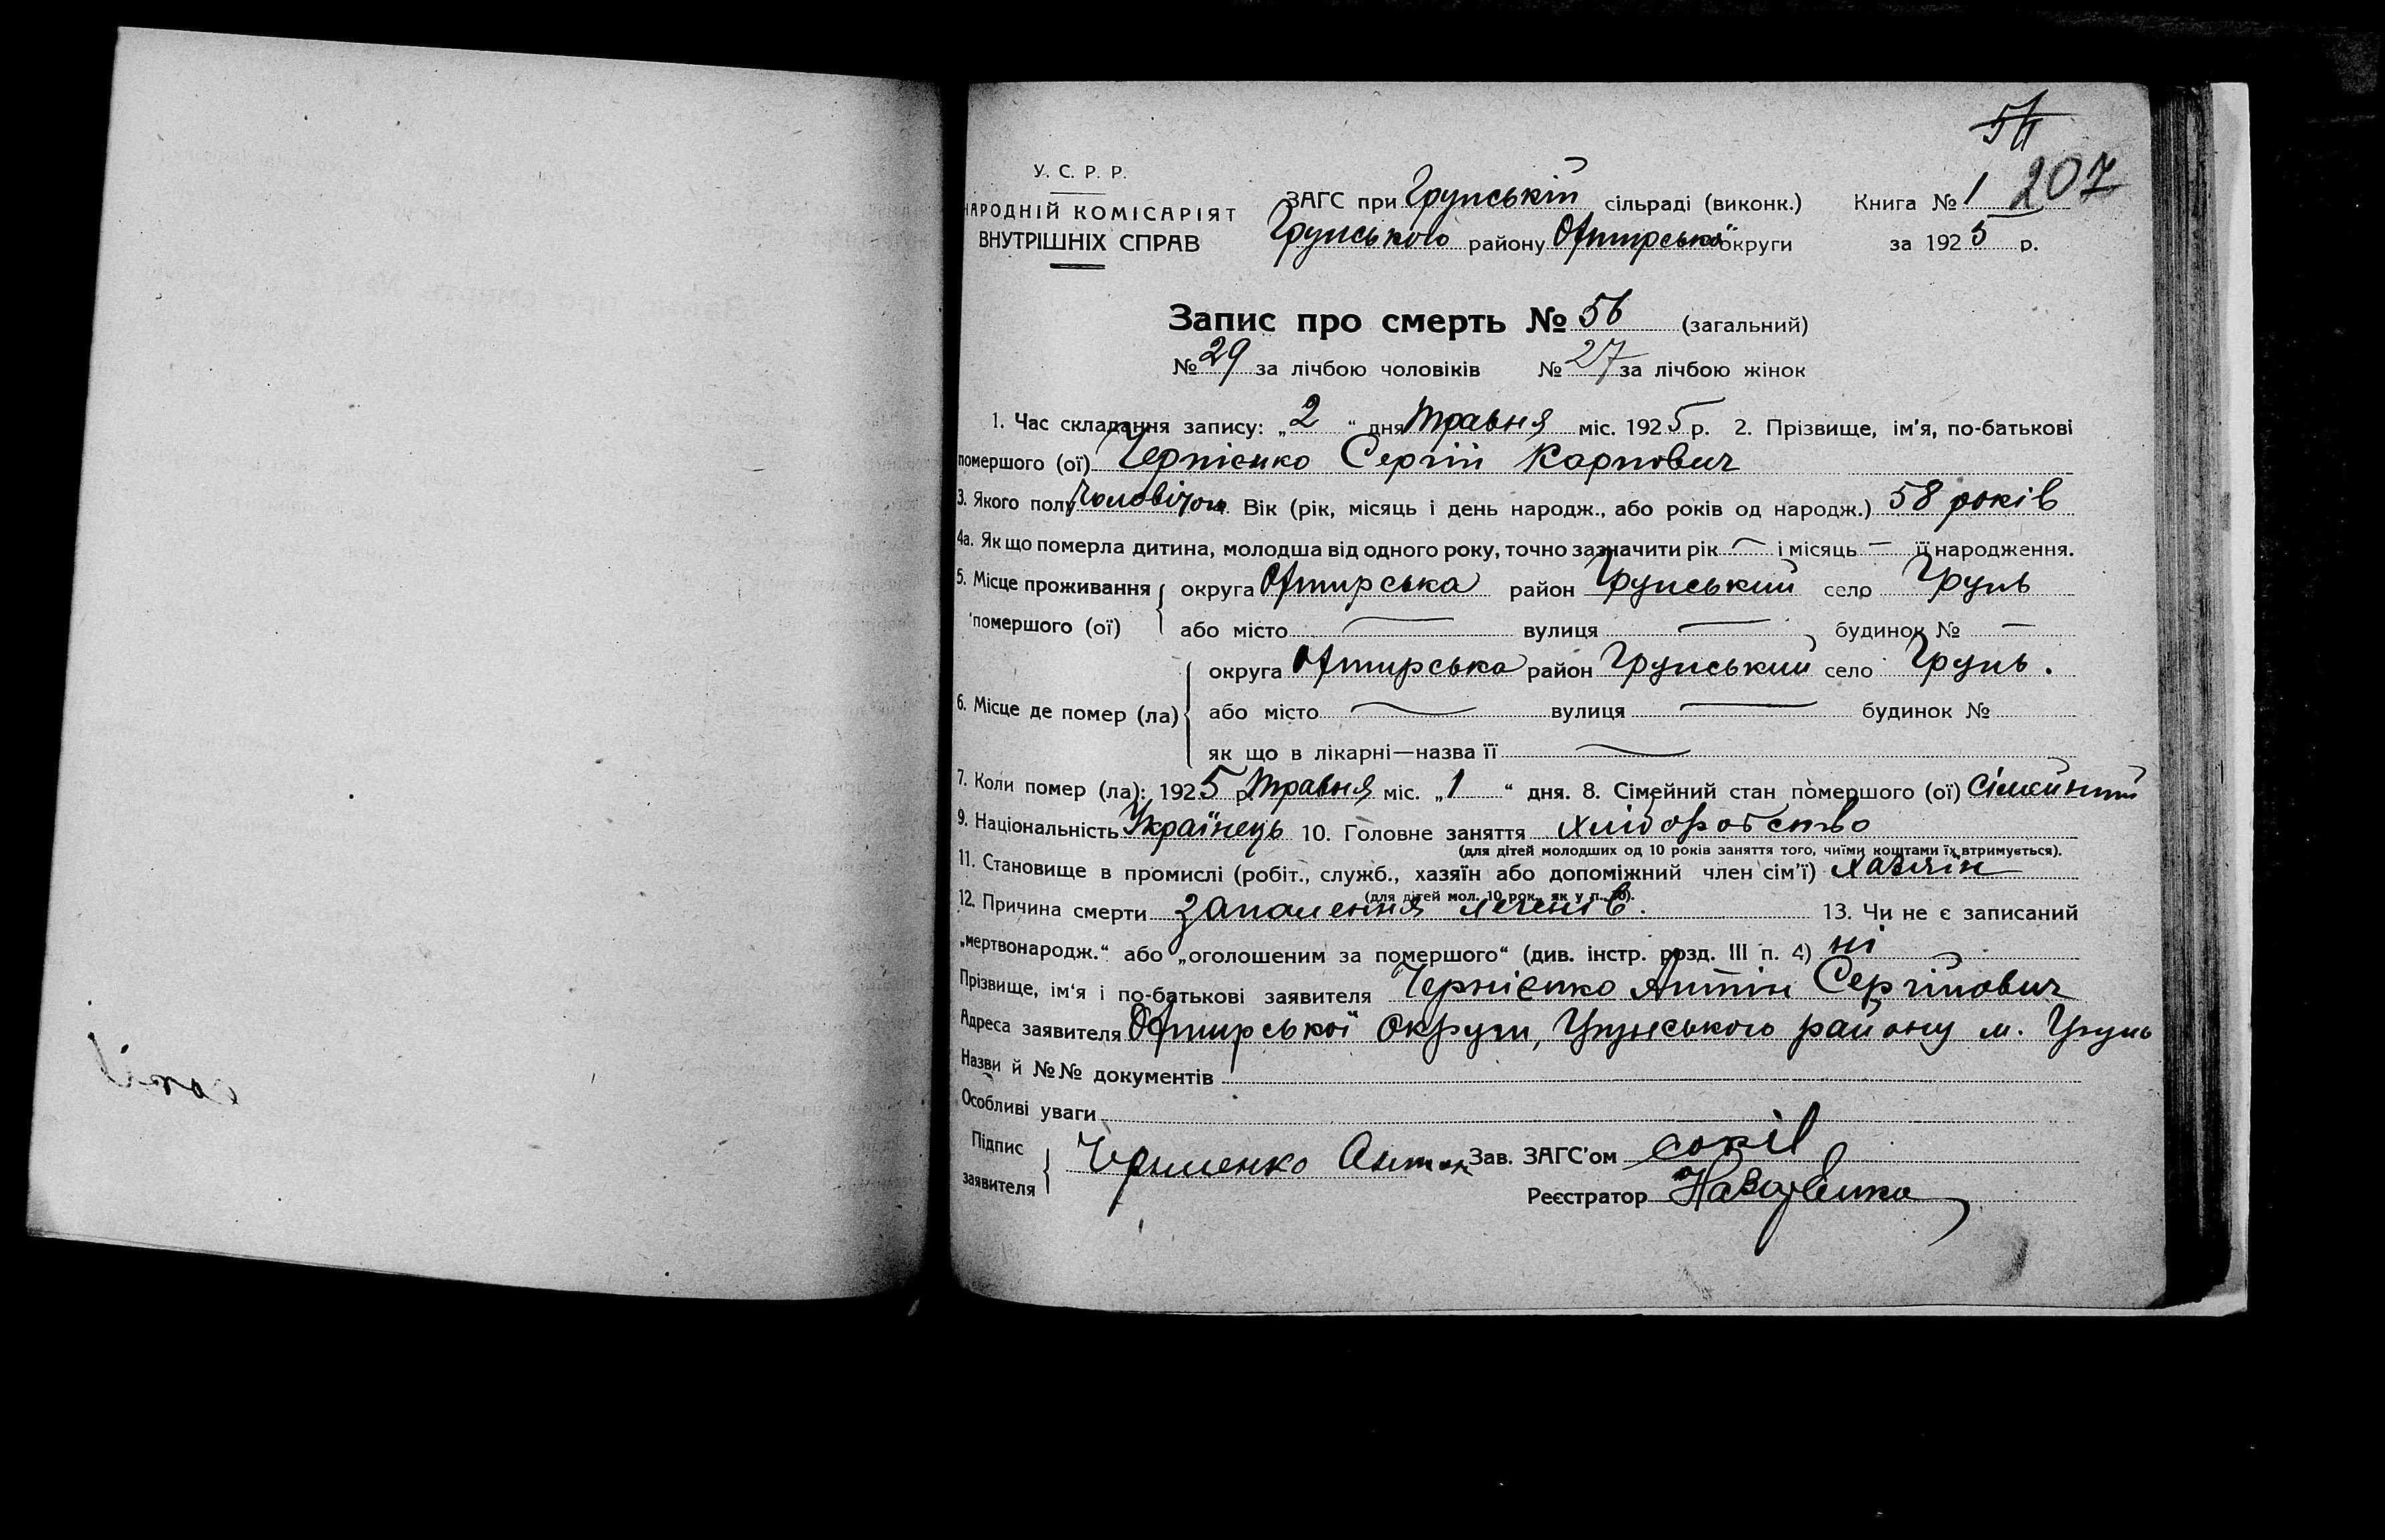 207
У. С. Р. Р.
НАРОДНІЙ КОМІСАРІЯТ
ВНУТРІШНІХ СПРАВ
ЗАГС при Грунській сільраді (виконк.) Книга № 1
Грунського району Охтирської округи за 1925 р.
Запис про смерть № 56 (загальний)
№ 29 за лічбою чоловіків № 27 за лічбою жінок
1. Час складання запису: „2“ дня травня міс. 1925 р. 2. Прізвище, ім'я, по-батькові
помершого (ої) Чернієнко Сергій Карпович
3. Якого полу чоловічого Вік (рік, місяць і день народж., або років од народж.) 58 років
4а. Як що померла дитина, молодша від одного року, точно зазначити рік — і місяць — її народження.
5. Місце проживання помершого (ої) округа Охтирська район Грунський село Грунь
або місто — вулиця — будинок № —
6. Місце де помер (ла) округа Охтирська район Грунський село Грунь.
або місто — вулиця — будинок №
як що в лікарні—назва її —
7. Коли помер (ла): 1925 р. травня міс. „1“ дня. 8. Сімейний стан помершого (ої) сімейний
9. Національність Українець 10. Головне заняття хліборобство
(для дітей молодших од 10 років заняття того, чиїми коштами їх втримується).
11. Становище в промислі (робіт., служб., хазяїн або допоміжний член сім'ї) хазяїн
(для дітей мол. 10 рок., як у п. 10).
12. Причина смерти запалення легенів. 13. Чи не є записаний
„мертвонародж.“ або „оголошеним за помершого“ (див. інстр. розд. III п. 4) ні
Прізвище, ім'я і по-батькові заявителя Чернієнко Антін Сергійович
Адреса заявителя Охтирської округи, Грунського району м. Грунь
Назви й №№ документів
Особливі уваги
Підпис заявителя Черниенко Антон Зав. ЗАГС'ом Сокіл
Реєстратор